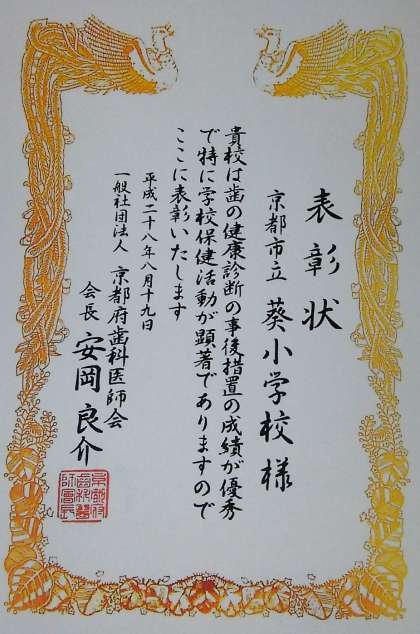 表彰状
京都市立 葵小学校様
貴校は歯の健康診断の事後措置の成績が優秀
で特に学校保健活動が顕著でありますので
ここに表彰いたします
平成二十八年八月十九日
一般社団法人 京都府歯科医師会
会長 安岡良介